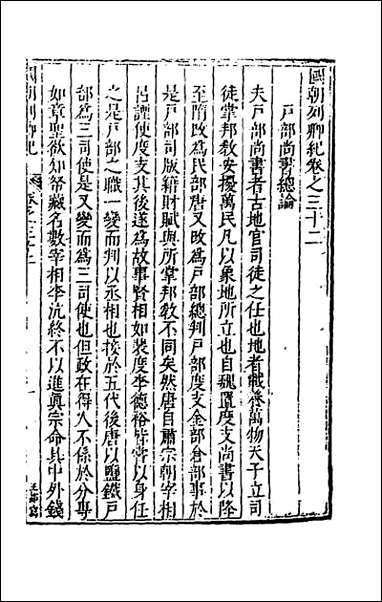 國朝列卿紀卷之三十二
戸部尚書總論
夫戸部尚書者古地官司徒之任也地者載養萬物天子立司
徒掌邦教安擾萬民凡以象地所立也自魏置度支尚書以降
至隋改為民部唐又改為戸部總判戸部度支金部倉部事於
是戸部司版籍財賦與所掌邦教不同矣然唐自肅宗朝宰相
呂諲使度支其後遂為故事賢相如裴度李德裕皆嘗以身任
之是戸部之職一變而判以丞相也接於五代後唐以鹽鐵戸
部為三司使是又變而爲三司使也但政在得人不係於分専
如章聖欲知帑藏名數宰相李沆終不以進眞宗命具中外錢
國朝列卿紀
卷之三十二